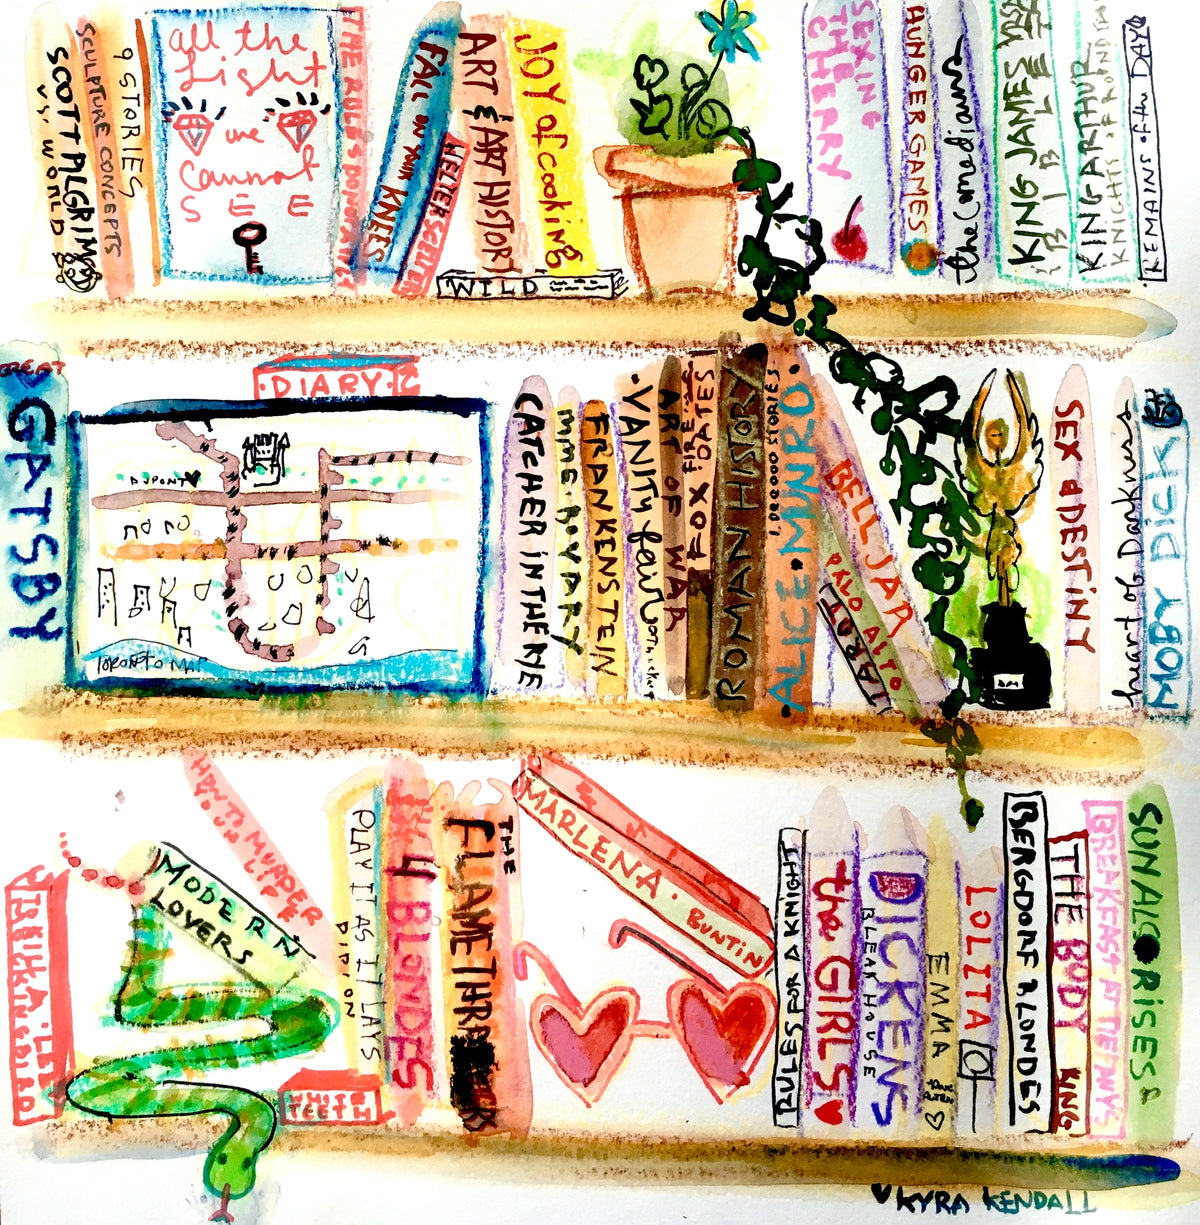 SCOTT PILGRIM
VS. WORLD
SCULPTURE CONCEPTS
9 STORIES
all the
Light
we
cannot
SEE
THE RULES DO NOT APPLY
FALL on your KNEES
HELTER SKELTER
ART & ART HISTORY
JOY of cooking
WILD
SEXING
THE
CHERRY
HUNGER GAMES
the Comedians
KING JAMES
BIBLE
KING ARTHUR
KNIGHTS OF ROUND
REMAINS of the DAY
GREAT
GATSBY
DIARY
DUPONT
TORONTO MAP
CATCHER IN THE RYE
MME. BOVARY
FRANKENSTEIN
VANITY fair
ART OF WAR
FOX FIRE
OATES
ROMAN HISTORY
STORIES
ALICE MUNRO
BELL JAR
PALO ALTO
TAROT
SEX & DESTINY
heart of Darkness
MOBY DICK
TO KILL A
MODERN
LOVERS
HOW TO MURDER
YOUR LIFE
PLAY IT AS IT LAYS
DIDION
4 BLONDES
THE
FLAMETHROWERS
WHITE
TEETH
MARLENA. BUNTIN
RULES FOR A KNIGHT
the GIRLS
DICKENS
BLEAK HOUSE
EMMA
LOLITA
BERGDORF BLONDES
THE BODY KING
BREAKFAST AT TIFFANYS
SUN ALSO RISES
KYRA KENDALL